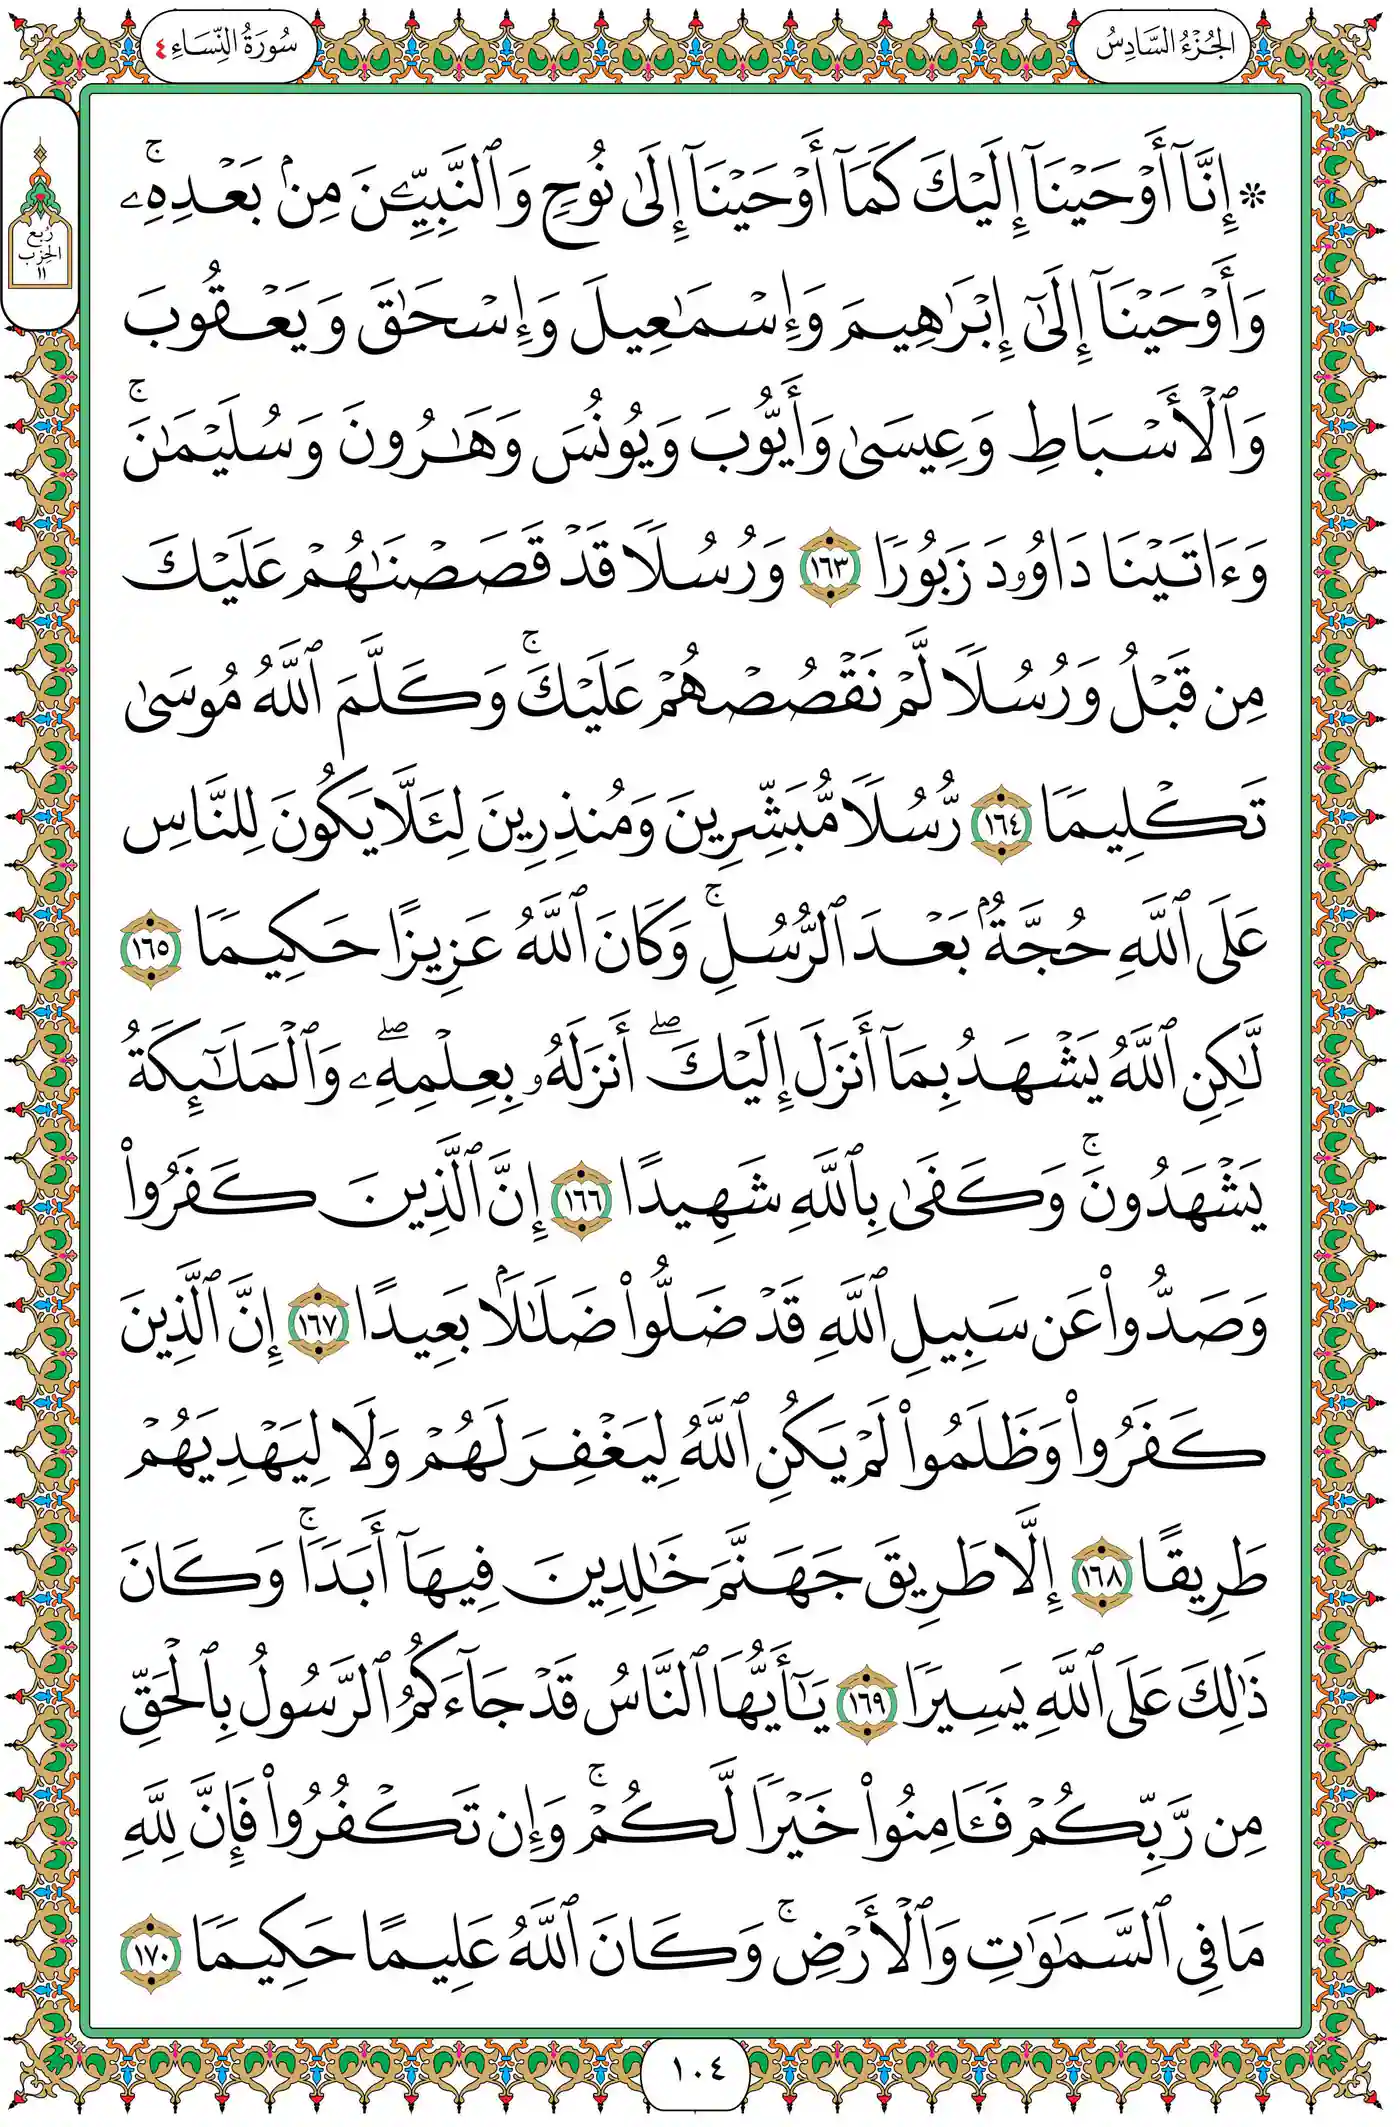 الجُزْءُ السَّادِسُ
سُورَةُ النِّسَاءِ ٤
رُبع
الحِزب
١١
۞ إِنَّآ أَوْحَيْنَآ إِلَيْكَ كَمَآ أَوْحَيْنَآ إِلَىٰ نُوحٍ وَٱلنَّبِيِّـۧنَ مِنۢ بَعْدِهِۦۚ
وَأَوْحَيْنَآ إِلَىٰٓ إِبْرَٰهِيمَ وَإِسْمَٰعِيلَ وَإِسْحَٰقَ وَيَعْقُوبَ
وَٱلْأَسْبَاطِ وَعِيسَىٰ وَأَيُّوبَ وَيُونُسَ وَهَٰرُونَ وَسُلَيْمَٰنَۚ
وَءَاتَيْنَا دَاوُۥدَ زَبُورًا ١٦٣ وَرُسُلًا قَدْ قَصَصْنَٰهُمْ عَلَيْكَ
مِن قَبْلُ وَرُسُلًا لَّمْ نَقْصُصْهُمْ عَلَيْكَۚ وَكَلَّمَ ٱللَّهُ مُوسَىٰ
تَكْلِيمًا ١٦٤ رُّسُلًا مُّبَشِّرِينَ وَمُنذِرِينَ لِئَلَّا يَكُونَ لِلنَّاسِ
عَلَى ٱللَّهِ حُجَّةٌۢ بَعْدَ ٱلرُّسُلِۚ وَكَانَ ٱللَّهُ عَزِيزًا حَكِيمًا ١٦٥
لَّٰكِنِ ٱللَّهُ يَشْهَدُ بِمَآ أَنزَلَ إِلَيْكَۖ أَنزَلَهُۥ بِعِلْمِهِۦۖ وَٱلْمَلَٰٓئِكَةُ
يَشْهَدُونَۚ وَكَفَىٰ بِٱللَّهِ شَهِيدًا ١٦٦ إِنَّ ٱلَّذِينَ كَفَرُوا۟
وَصَدُّوا۟ عَن سَبِيلِ ٱللَّهِ قَدْ ضَلُّوا۟ ضَلَٰلًۢا بَعِيدًا ١٦٧ إِنَّ ٱلَّذِينَ
كَفَرُوا۟ وَظَلَمُوا۟ لَمْ يَكُنِ ٱللَّهُ لِيَغْفِرَ لَهُمْ وَلَا لِيَهْدِيَهُمْ
طَرِيقًا ١٦٨ إِلَّا طَرِيقَ جَهَنَّمَ خَٰلِدِينَ فِيهَآ أَبَدًاۚ وَكَانَ
ذَٰلِكَ عَلَى ٱللَّهِ يَسِيرًا ١٦٩ يَٰٓأَيُّهَا ٱلنَّاسُ قَدْ جَآءَكُمُ ٱلرَّسُولُ بِٱلْحَقِّ
مِن رَّبِّكُمْ فَـَٔامِنُوا۟ خَيْرًا لَّكُمْۚ وَإِن تَكْفُرُوا۟ فَإِنَّ لِلَّهِ
مَا فِى ٱلسَّمَٰوَٰتِ وَٱلْأَرْضِۚ وَكَانَ ٱللَّهُ عَلِيمًا حَكِيمًا ١٧٠
١٠٤